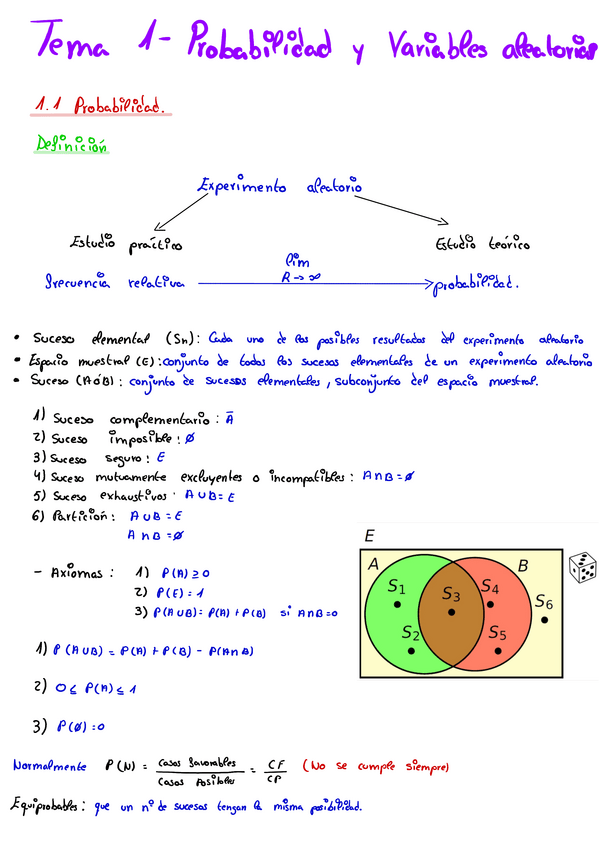 Tema 1 - Probabilidad y Variables aleatorias
1.1 Probabilidad.
Definición
Experimento aleatorio
Estudio práctico
Estudio teórico
frecuencia relativa
lim
R → ∞
probabilidad.
• Suceso elemental (Sn): Cada uno de los posibles resultados del experimento aleatorio
• Espacio muestral (E): conjunto de todos los sucesos elementales de un experimento aleatorio
• Suceso (A ó B): conjunto de sucesos elementales, subconjunto del espacio muestral.
1) Suceso complementario: Ā
2) Suceso imposible: ∅
3) Suceso seguro: E
4) Suceso mutuamente excluyentes o incompatibles: A∩B=∅
5) Suceso exhaustivos: A∪B=E
6) Partición: A∪B=E
A∩B=∅
- Axiomas: 1) P(A) ≥ 0
2) P(E) = 1
3) P(A∪B) = P(A) + P(B) si A∩B=0
E
A
B
S1
S2
S3
S4
S5
S6
1) P(A∪B) = P(A) + P(B) - P(A∩B)
2) 0 ≤ P(A) ≤ 1
3) P(∅) = 0
Normalmente P(N) = Casos favorables / Casos Posibles = CF / CP (No se cumple siempre)
Equiprobables: que un nº de sucesos tengan la misma posibilidad.